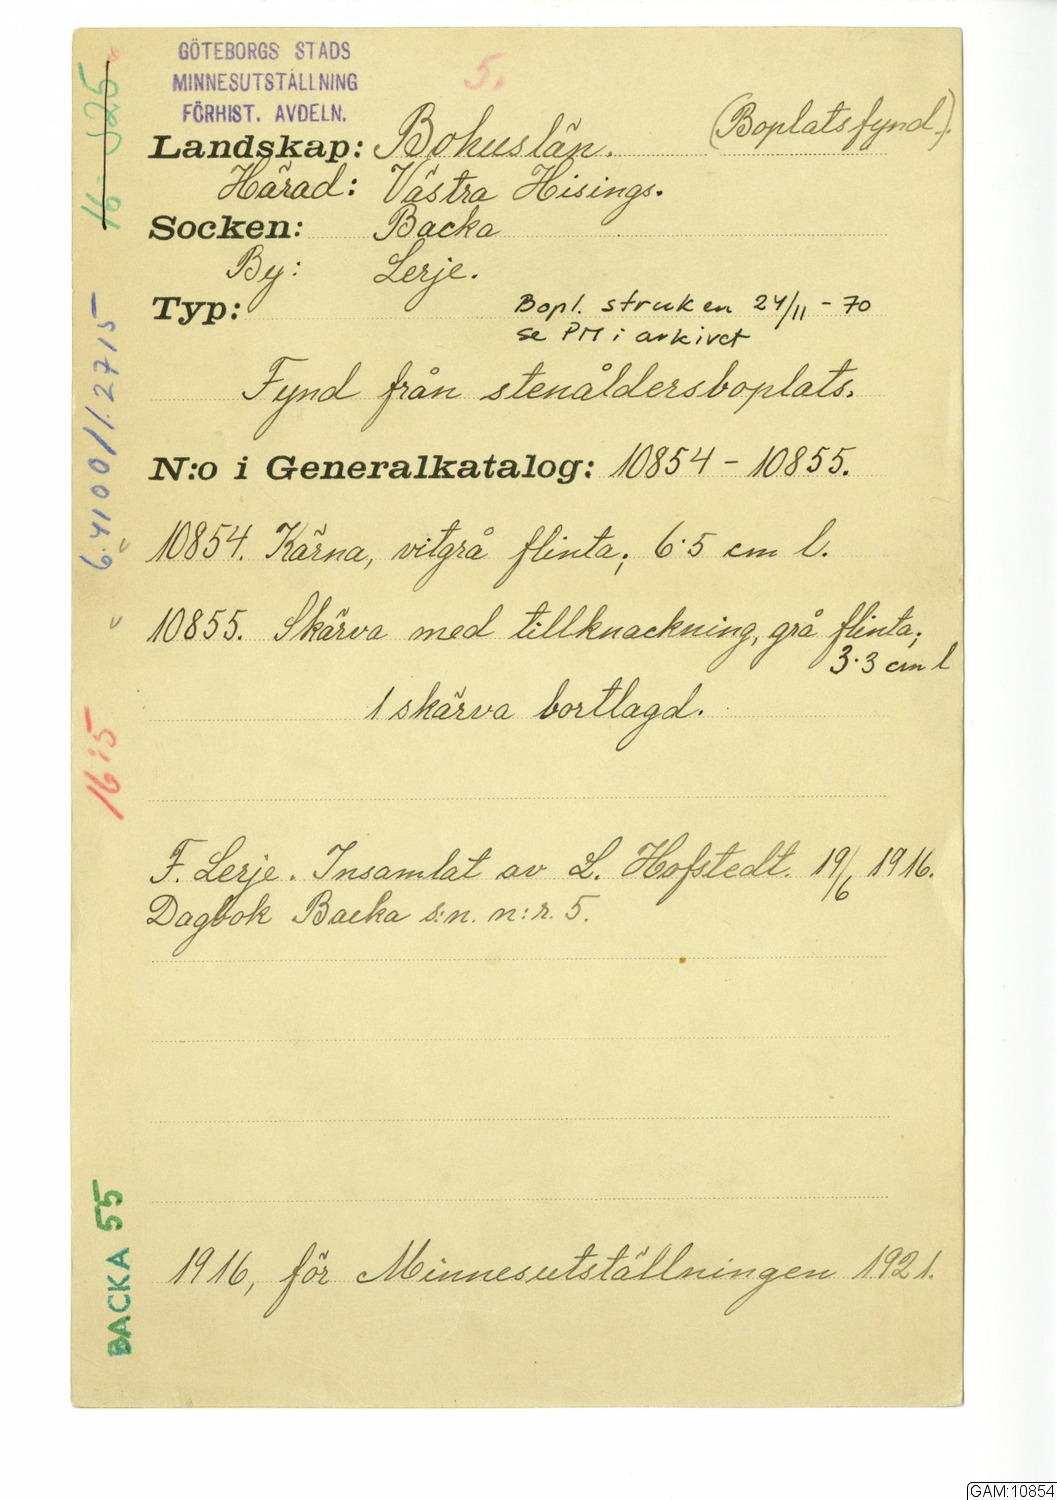 GÖTEBORGS STADS
MINNESUTSTÄLLNING
FÖRHIST. AVDELN.
5.
(Boplatsfynd).
Landskap: Bohuslän.
Härad: Västra Hisings.
Socken: Backa
By: Lerje.
Typ:
Bopl. struken 24/11-70
se PM i arkivet
Fynd från stenåldersboplats.
N:o i Generalkatalog: 10854-10855.
10854. Kärna, vitgrå flinta; 6.5 cm l.
10855. Skärva med tillknackning, grå flinta;
3.3 cm l
1 skärva bortlagd.
F. Lerje. Insamlat av L. Hofstedt. 19/6 1916.
Dagbok Backa s:n. n:r. 5.
1916, för Minnesutställningen 1921.
16:5
BACKA 55
GAM:10854